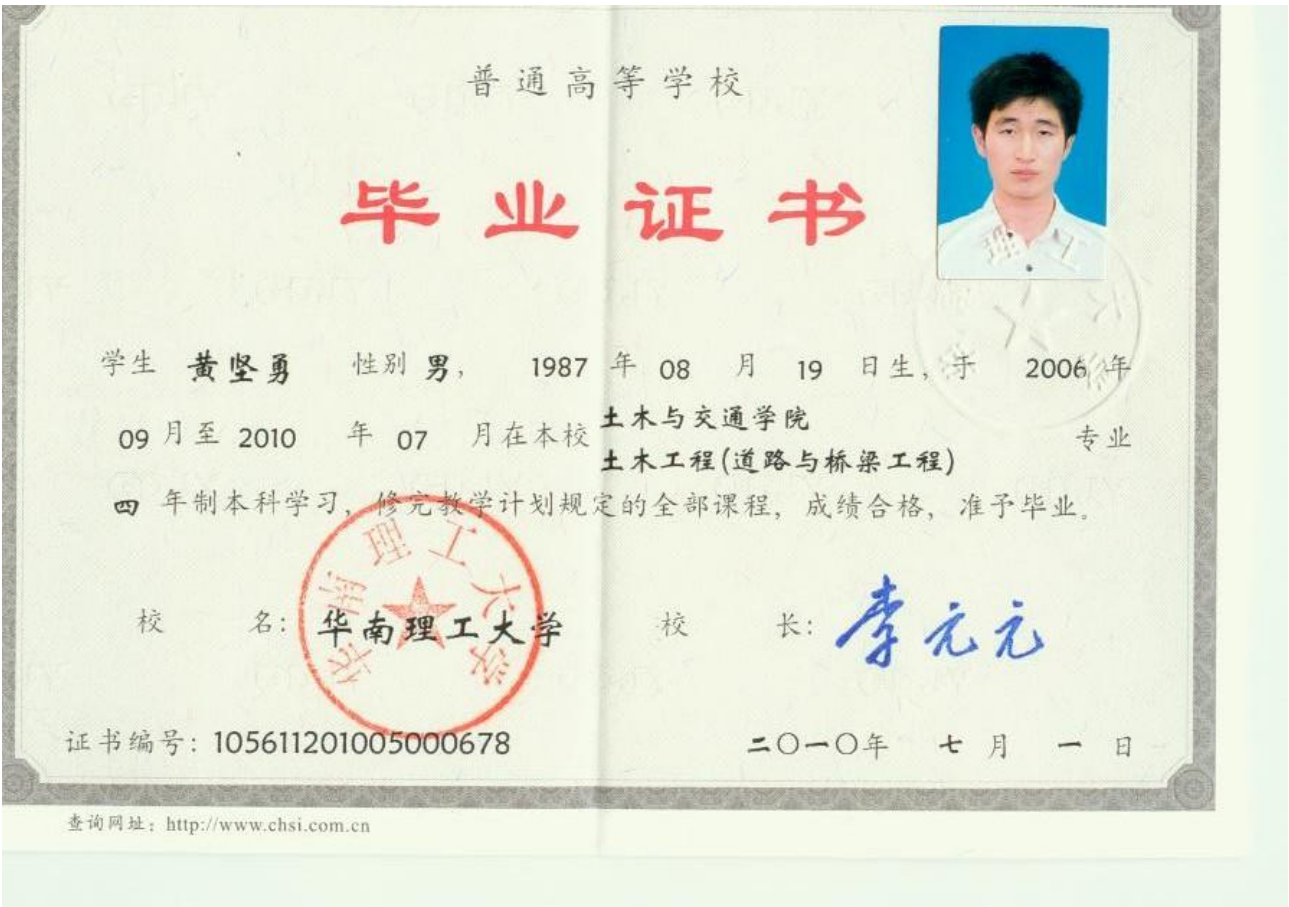 普通高等学校
毕业证书
学生 黄坚勇 性别 男, 1987 年 08 月 19 日生, 于 2006 年
09 月至 2010 年 07 月在本校 土木与交通学院
土木工程(道路与桥梁工程) 专业
四 年制本科学习, 修完教学计划规定的全部课程, 成绩合格, 准予毕业。
华南理工大学
校 名: 华南理工大学 校 长: 李元元
证书编号: 105611201005000678 二〇一〇年 七 月 一 日
查询网址: http://www.chsi.com.cn